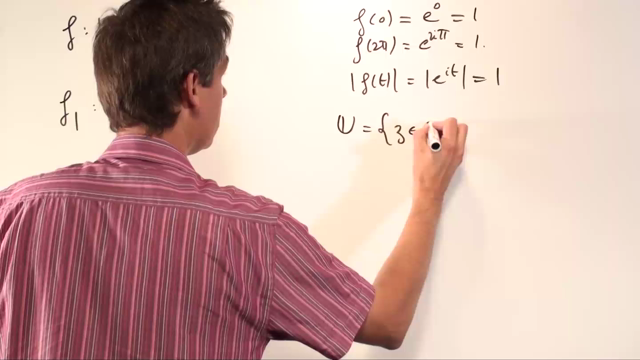 f:
f₁:
f(0) = e⁰ = 1
f(2π) = e²ⁱᵖⁱ = 1.
|f(t)| = |eⁱᵗ| = 1
U = {z ∈